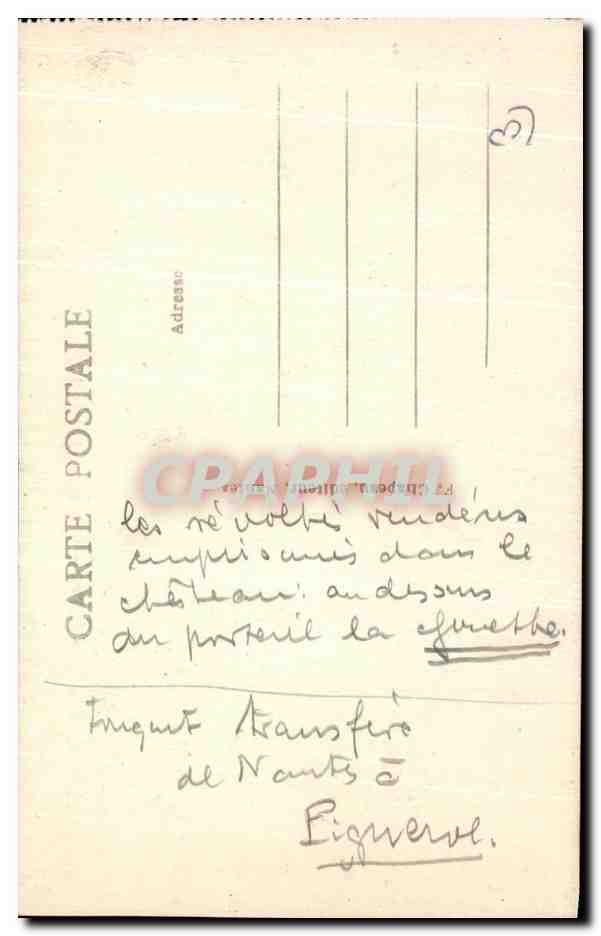 CARTE POSTALE
Adresse
F. Chapeau, Editeur, Nantes
CPAPHIL
3)
les révoltés vendéens
emprisonnés dans le
château: au dessus
du portail la
Fouquet transféré
de Nantes à
Pignerol.